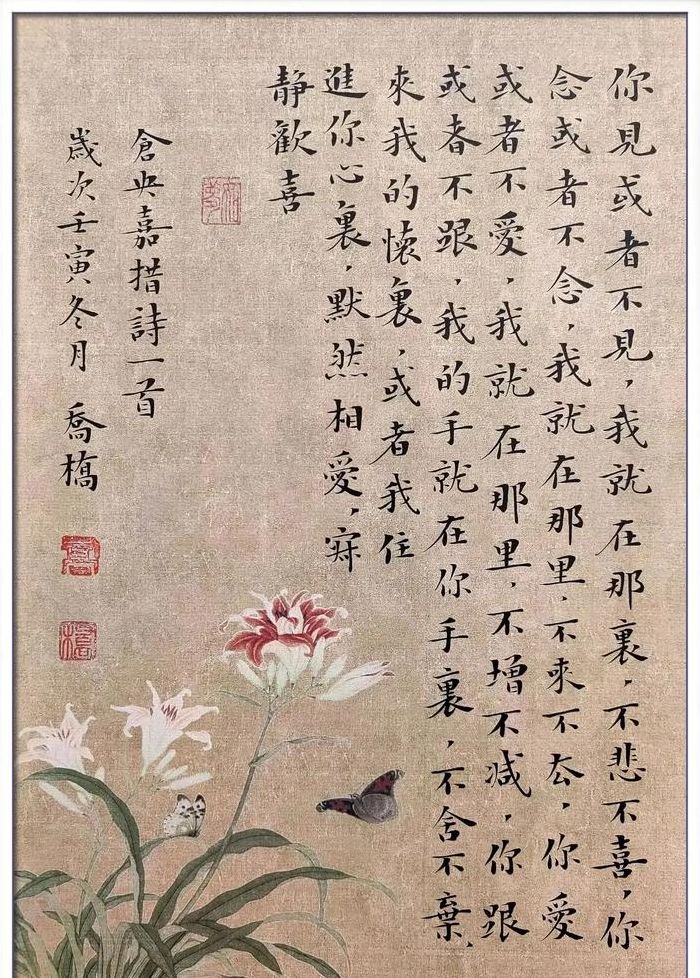 你見或者不見，我就在那裏，不悲不喜，你
念或者不念，我就在那里，不來不去，你愛
或者不愛，我就在那里，不增不减，你跟
或者不跟，我的手就在你手裏，不舍不棄，
來我的懷裏，或者我住
進你心裏，默然相愛，寂
静歡喜
倉央嘉措詩一首
歲次壬寅冬月 喬橋